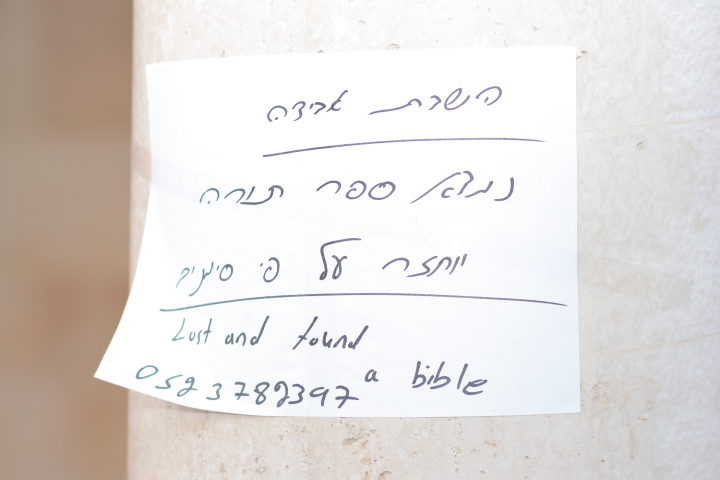 השבת אבידה
נמצא ספר תורה
יוחזר על פי סימנים
Lost and found
a bible
0523782397